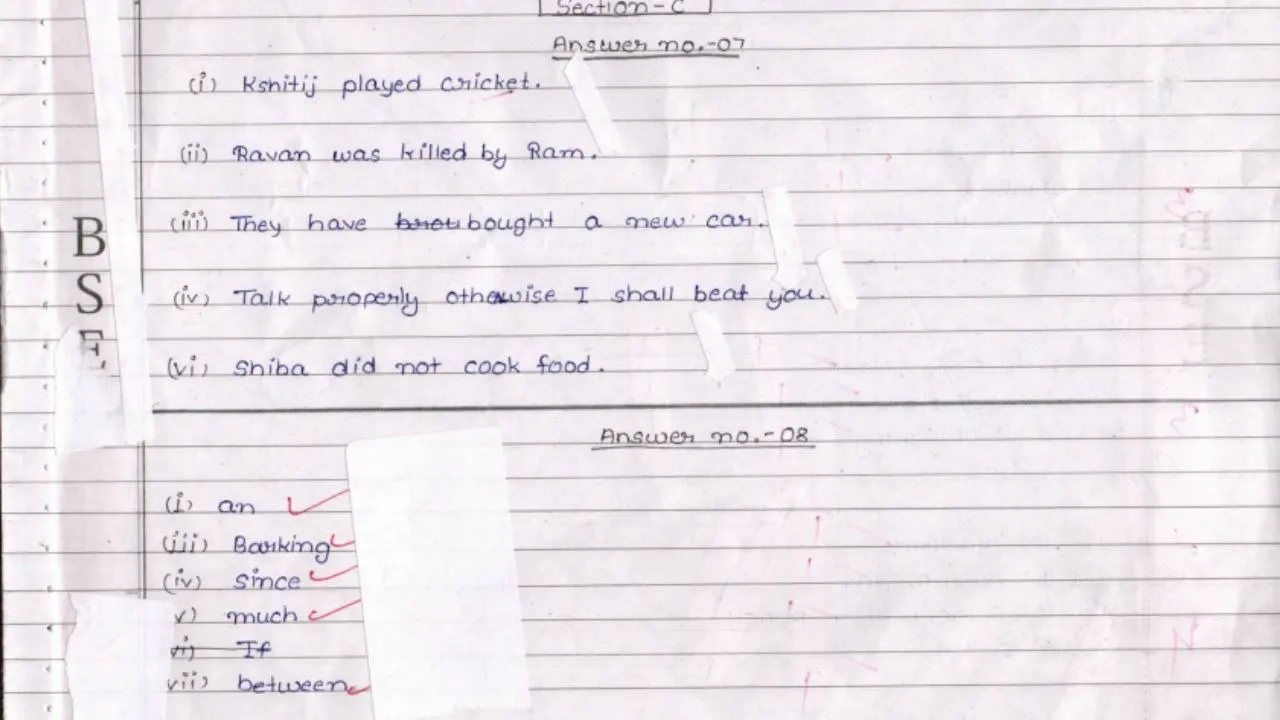 Section-C
Answer no.-07
(i) Kshitij played cricket.
(ii) Ravan was killed by Ram.
(iii) They have brou bought a new car.
(iv) Talk properly otherwise I shall beat you.
(vi) Shiba did not cook food.
B
S
E
Answer no.-08
(i) an
(iii) Barking
(iv) since
v) much
vi) If
vii) between